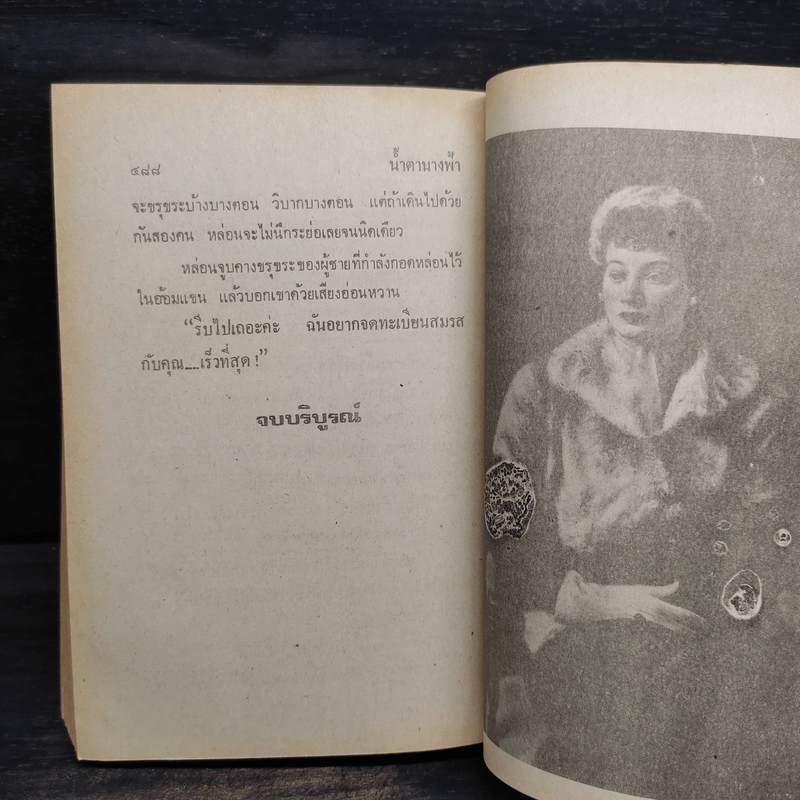 ๔๘๘ น้ำตานางฟ้า
จะขรุขระบ้างบางตอน วิบากบางตอน แต่ถ้าเดินไปด้วย
กันสองคน หล่อนจะไม่นึกระย่อเลยจนนิดเดียว
หล่อนจูบคางขรุขระของผู้ชายที่กำลังกอดหล่อนไว้
ในอ้อมแขน แล้วบอกเขาด้วยเสียงอ่อนหวาน
“รีบไปเถอะค่ะ ฉันอยากจดทะเบียนสมรส
กับคุณ....เร็วที่สุด !”
จบบริบูรณ์